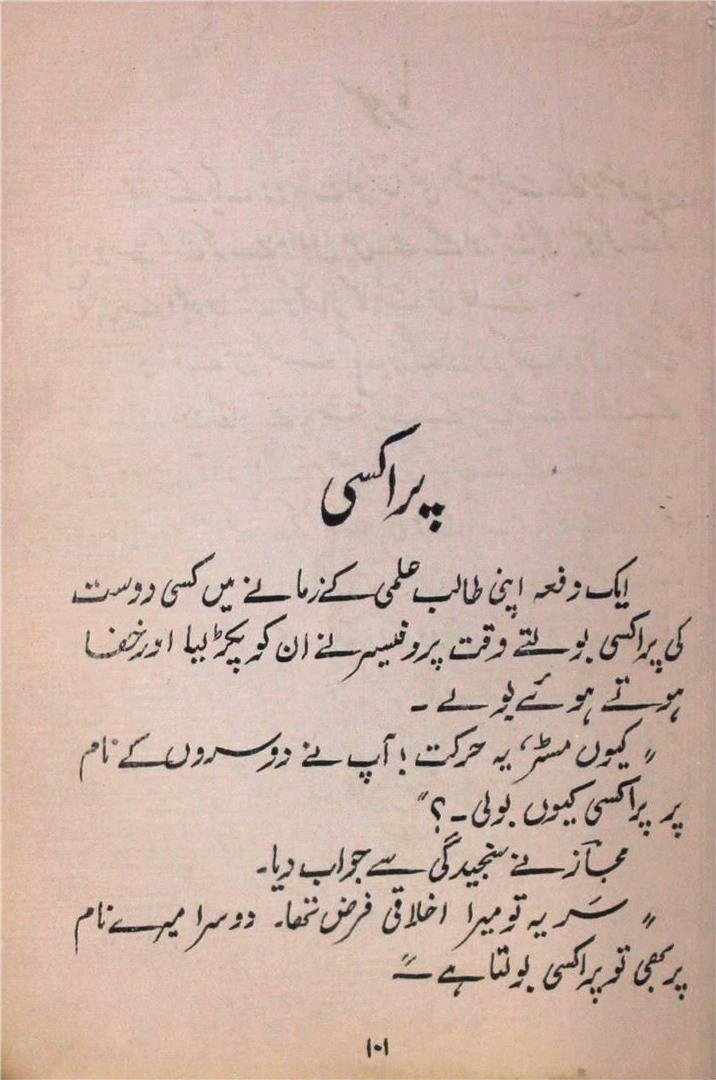 پراکسی
ایک دفعہ اپنی طالب علمی کے زمانے میں کسی دوست
کی پراکسی بولتے وقت پروفیسر نے ان کو پکڑ لیا اور خفا
ہوتے ہوئے بولے ۔
"کیوں مسٹر، یہ حرکت! آپ نے دوسروں کے نام
پر پراکسی کیوں بولی ۔؟"
مجازؔ نے سنجیدگی سے جواب دیا۔
"سَر یہ تو میرا اخلاقی فرض تھا۔ دوسرا میرے نام
پر بھی تو پراکسی بولتا ہے —"
۱۰۱